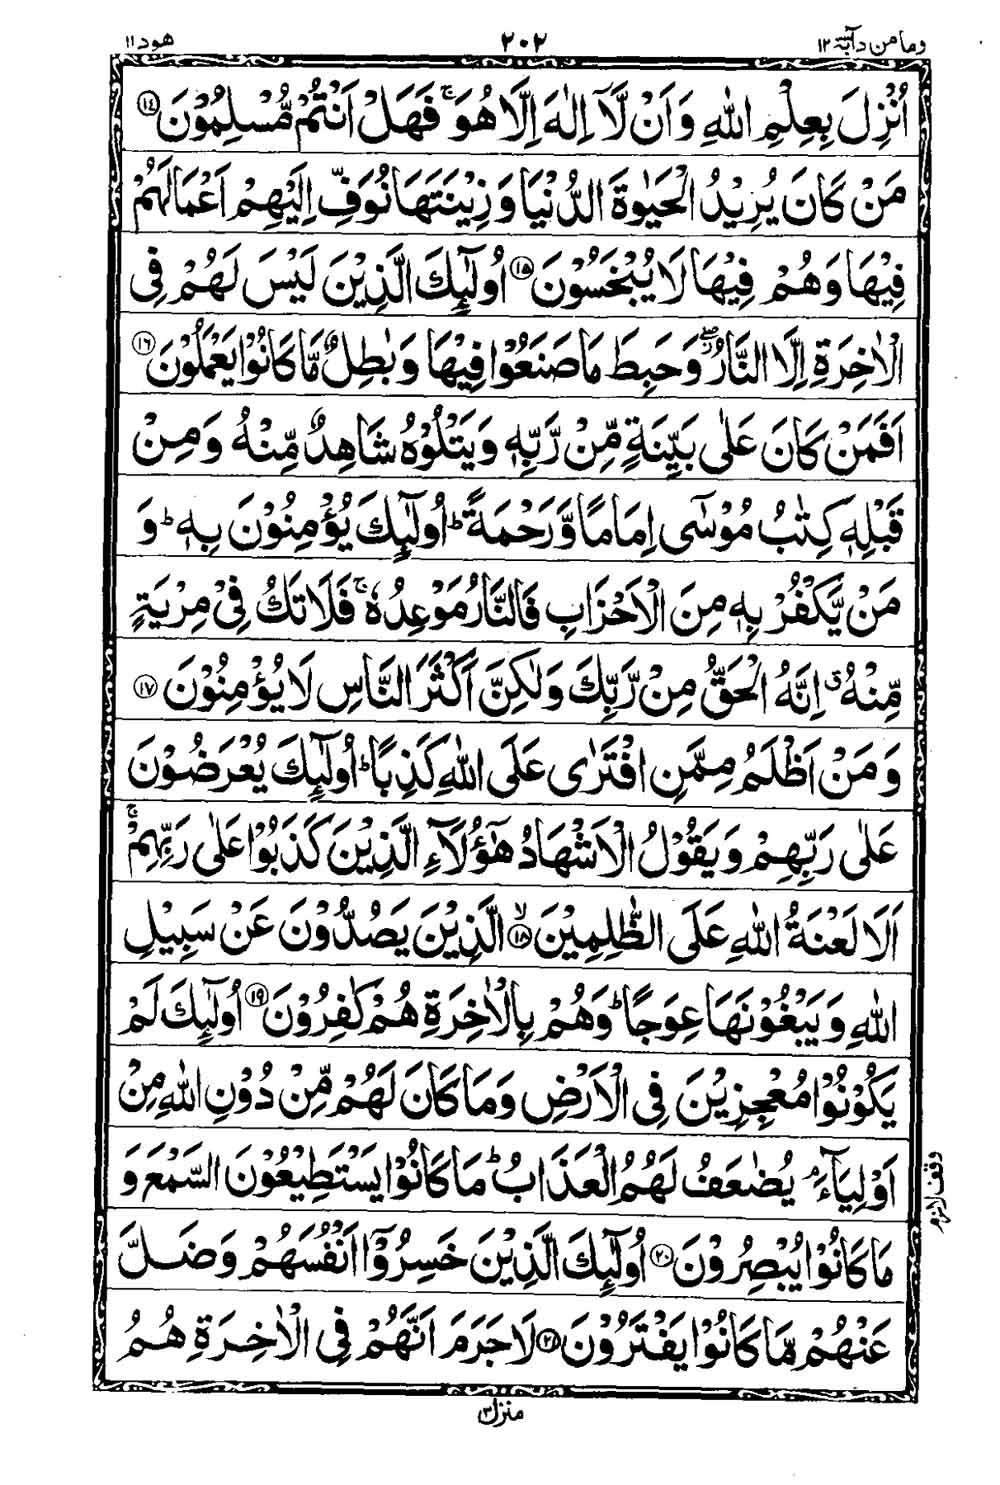 وما من دآبة ١٢ ٢٠٢ هود ١١
اُنْزِلَ بِعِلْمِ اللّٰهِ وَاَنْ لَّاۤ اِلٰهَ اِلَّا هُوَ ۚ فَهَلْ اَنْتُمْ مُّسْلِمُوْنَ ﴿۱٤﴾
مَنْ كَانَ يُرِيْدُ الْحَيٰوةَ الدُّنْيَا وَ زِيْنَتَهَا نُوَفِّ اِلَيْهِمْ اَعْمَالَهُمْ
فِيْهَا وَهُمْ فِيْهَا لَا يُبْخَسُوْنَ ﴿۱۵﴾ اُولٰٓئِكَ الَّذِيْنَ لَيْسَ لَهُمْ فِى
الْاٰخِرَةِ اِلَّا النَّارُ ۖ ؗ وَحَبِطَ مَا صَنَعُوْا فِيْهَا وَ بٰطِلٌ مَّا كَانُوْا يَعْمَلُوْنَ ﴿۱۶﴾
اَفَمَنْ كَانَ عَلٰى بَيِّنَةٍ مِّنْ رَّبِّهٖ وَ يَتْلُوْهُ شَاهِدٌ مِّنْهُ وَ مِنْ
قَبْلِهٖ كِتٰبُ مُوْسٰۤى اِمَامًا وَّ رَحْمَةً ؕ اُولٰٓئِكَ يُؤْمِنُوْنَ بِهٖ ؕ وَ
مَنْ يَّكْفُرْ بِهٖ مِنَ الْاَحْزَابِ فَالنَّارُ مَوْعِدُهٗ ۚ فَلَا تَكُ فِىْ مِرْيَةٍ
مِّنْهُ ۗ اِنَّهُ الْحَقُّ مِنْ رَّبِّكَ وَلٰكِنَّ اَكْثَرَ النَّاسِ لَا يُؤْمِنُوْنَ ﴿۱۷﴾
وَ مَنْ اَظْلَمُ مِمَّنِ افْتَرٰى عَلَى اللّٰهِ كَذِبًا ؕ اُولٰٓئِكَ يُعْرَضُوْنَ
عَلٰى رَبِّهِمْ وَ يَقُوْلُ الْاَشْهَادُ هٰٓؤُلَآءِ الَّذِيْنَ كَذَبُوْا عَلٰى رَبِّهِمْ ۚ
اَلَا لَعْنَةُ اللّٰهِ عَلَى الظّٰلِمِيْنَ ﴿۱۸﴾ ۙ الَّذِيْنَ يَصُدُّوْنَ عَنْ سَبِيْلِ
اللّٰهِ وَ يَبْغُوْنَهَا عِوَجًا ؕ وَهُمْ بِالْاٰخِرَةِ هُمْ كٰفِرُوْنَ ﴿۱۹﴾ اُولٰٓئِكَ لَمْ
يَكُوْنُوْا مُعْجِزِيْنَ فِى الْاَرْضِ وَمَا كَانَ لَهُمْ مِّنْ دُوْنِ اللّٰهِ مِنْ
اَوْلِيَآءَ ۘ يُضٰعَفُ لَهُمُ الْعَذَابُ ؕ مَا كَانُوْا يَسْتَطِيْعُوْنَ السَّمْعَ وَ
وقف لازم
مَا كَانُوْا يُبْصِرُوْنَ ﴿۲۰﴾ اُولٰٓئِكَ الَّذِيْنَ خَسِرُوْۤا اَنْفُسَهُمْ وَ ضَلَّ
عَنْهُمْ مَّا كَانُوْا يَفْتَرُوْنَ ﴿۲۱﴾ لَا جَرَمَ اَنَّهُمْ فِى الْاٰخِرَةِ هُمُ
منزل ٣